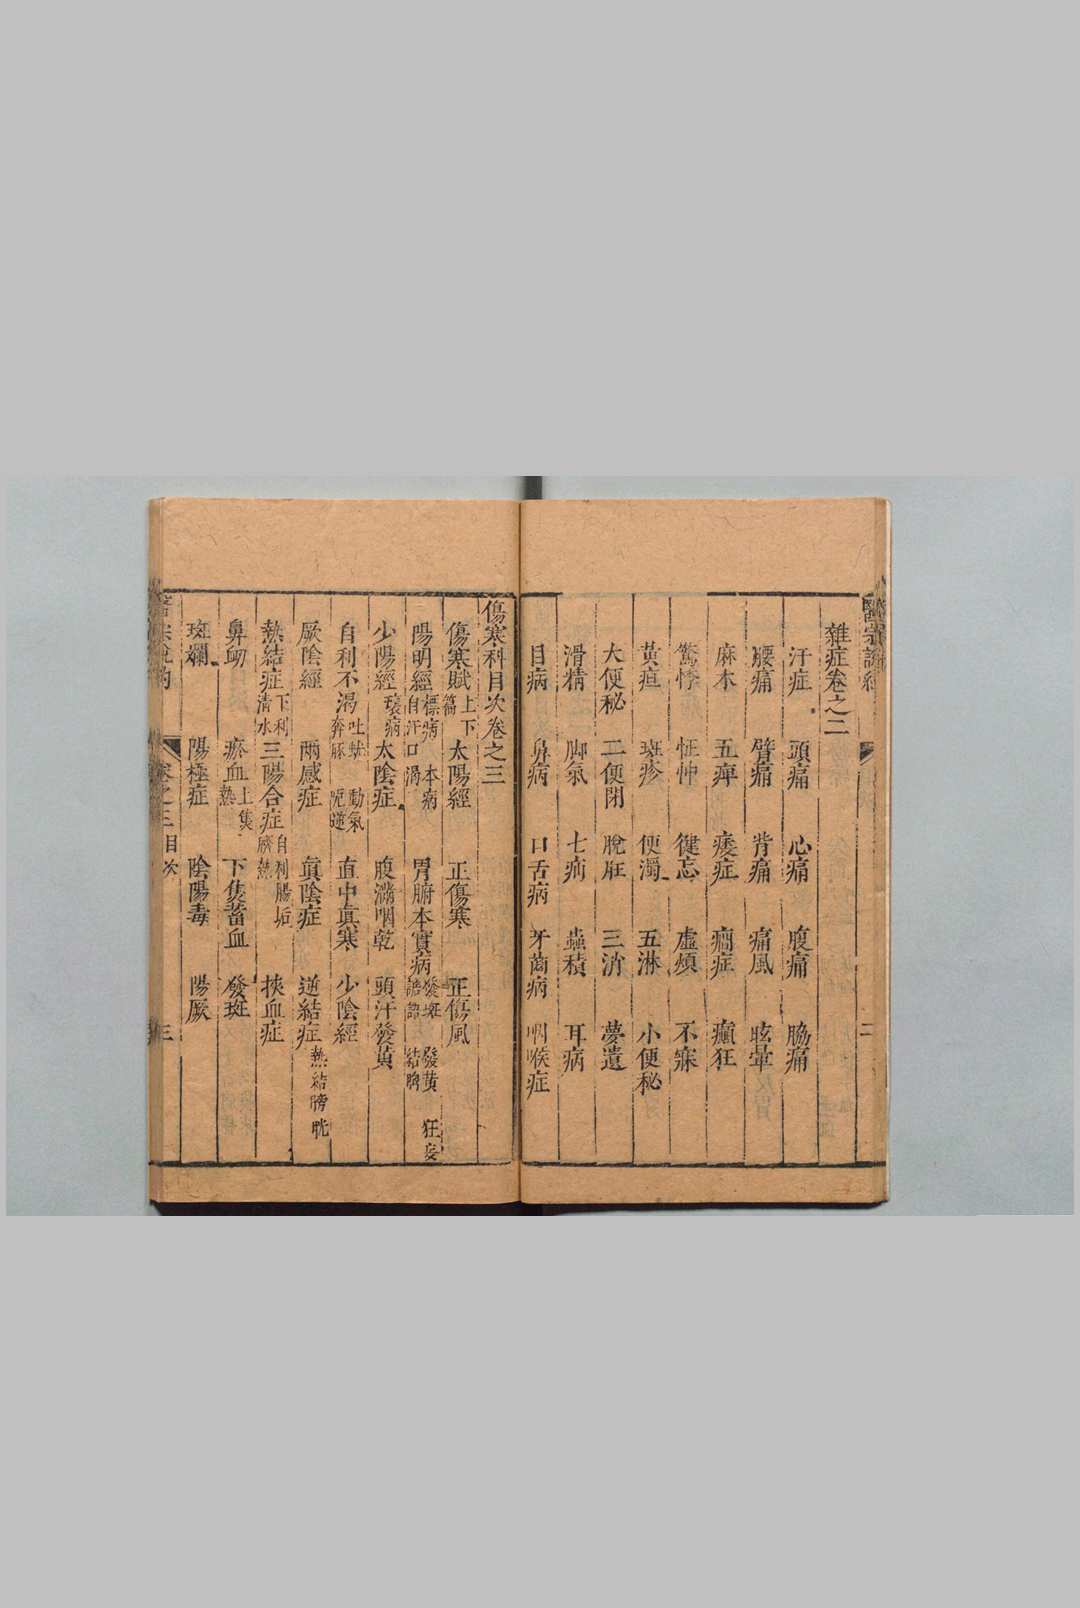 雜症卷之二
汗症 頭痛 心痛 腹痛 脇痛
腰痛 臂痛 背痛 痛風 眩暈
麻木 五痺 痿症 癎症 癲狂
驚悸 怔忡 健忘 虛煩 不寐
黃疸 斑疹 便濁 五淋 小便秘
大便秘 二便閉 脫肛 三消 夢遺
滑精 脚氣 七疝 蟲積 耳病
目病 鼻病 口舌病 牙齒病 咽喉症
二
傷寒科目次卷之三
傷寒賦 上下篇 太陽經 正傷寒 正傷風
陽明經 標病 自汗 本病 口渴 胃腑本實病 發斑 譫語 發黃 結胸 狂妄
少陽經 壞病 太陰症 腹滿咽乾 頭汗發黃
自利不渴 吐蚘 奔豚 動氣 呃逆 直中眞寒 少陰經
厥陰經 兩感症 眞陰症 逆結症 熱結膀胱
熱結症 下利清水 三陽合症 自利腸垢 臍熱 挾血症
鼻衂 瘀血 上集熱 下隻蓄血 發斑
斑爛 陽極症 陰陽毒 陽厥
卷之三目次
三